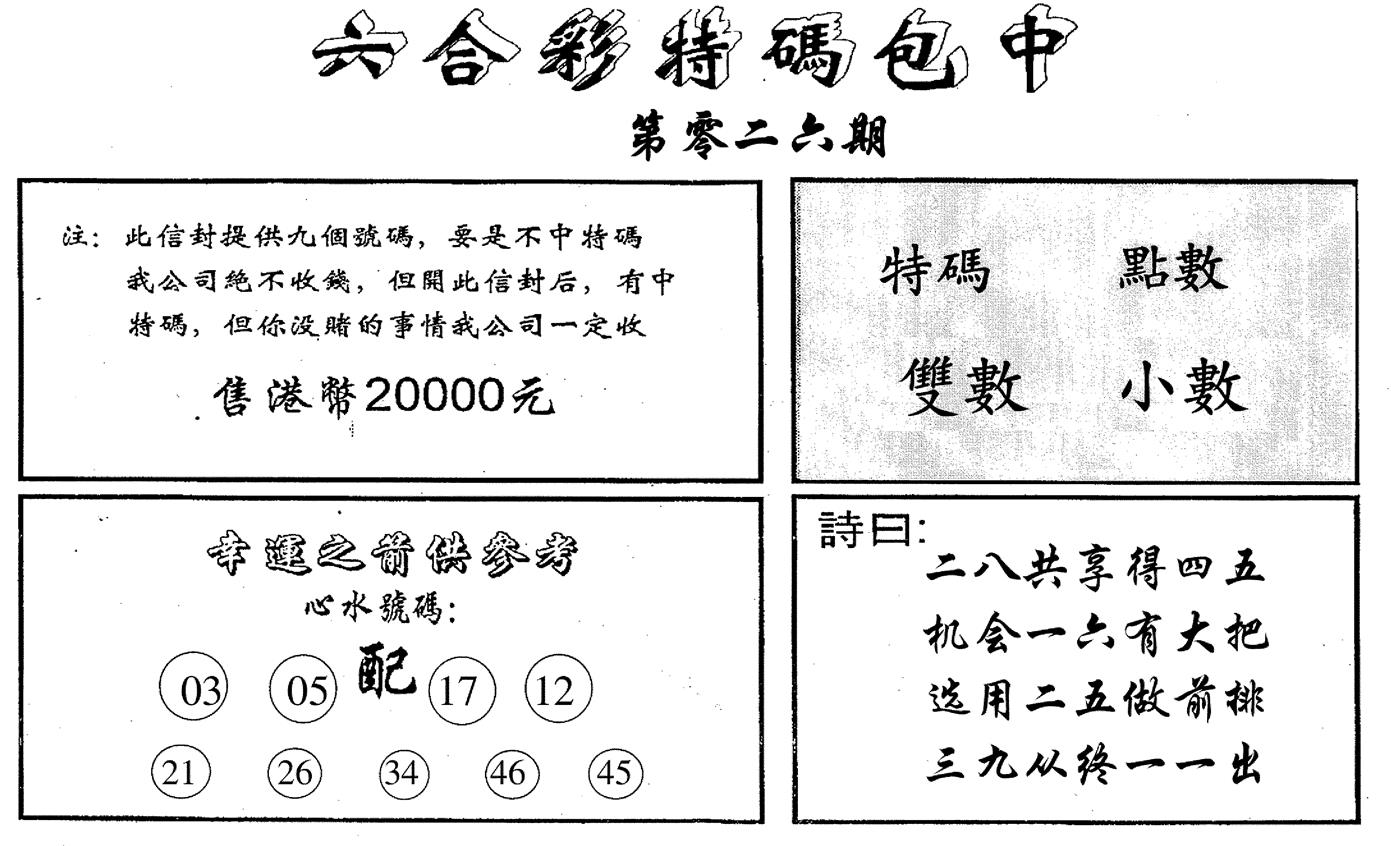 六合彩特碼包中
第零二六期
注：此信封提供九個號碼，要是不中特碼
我公司絶不收錢，但開此信封后，有中
特碼，但你没賭的事情我公司一定收
售港幣20000元
特碼 點數
雙數 小數
幸運之箭供參考
心水號碼：
03 05 配 17 12
21 26 34 46 45
詩曰：
二八共享得四五
机会一六有大把
选用二五做前排
三九从终一一出